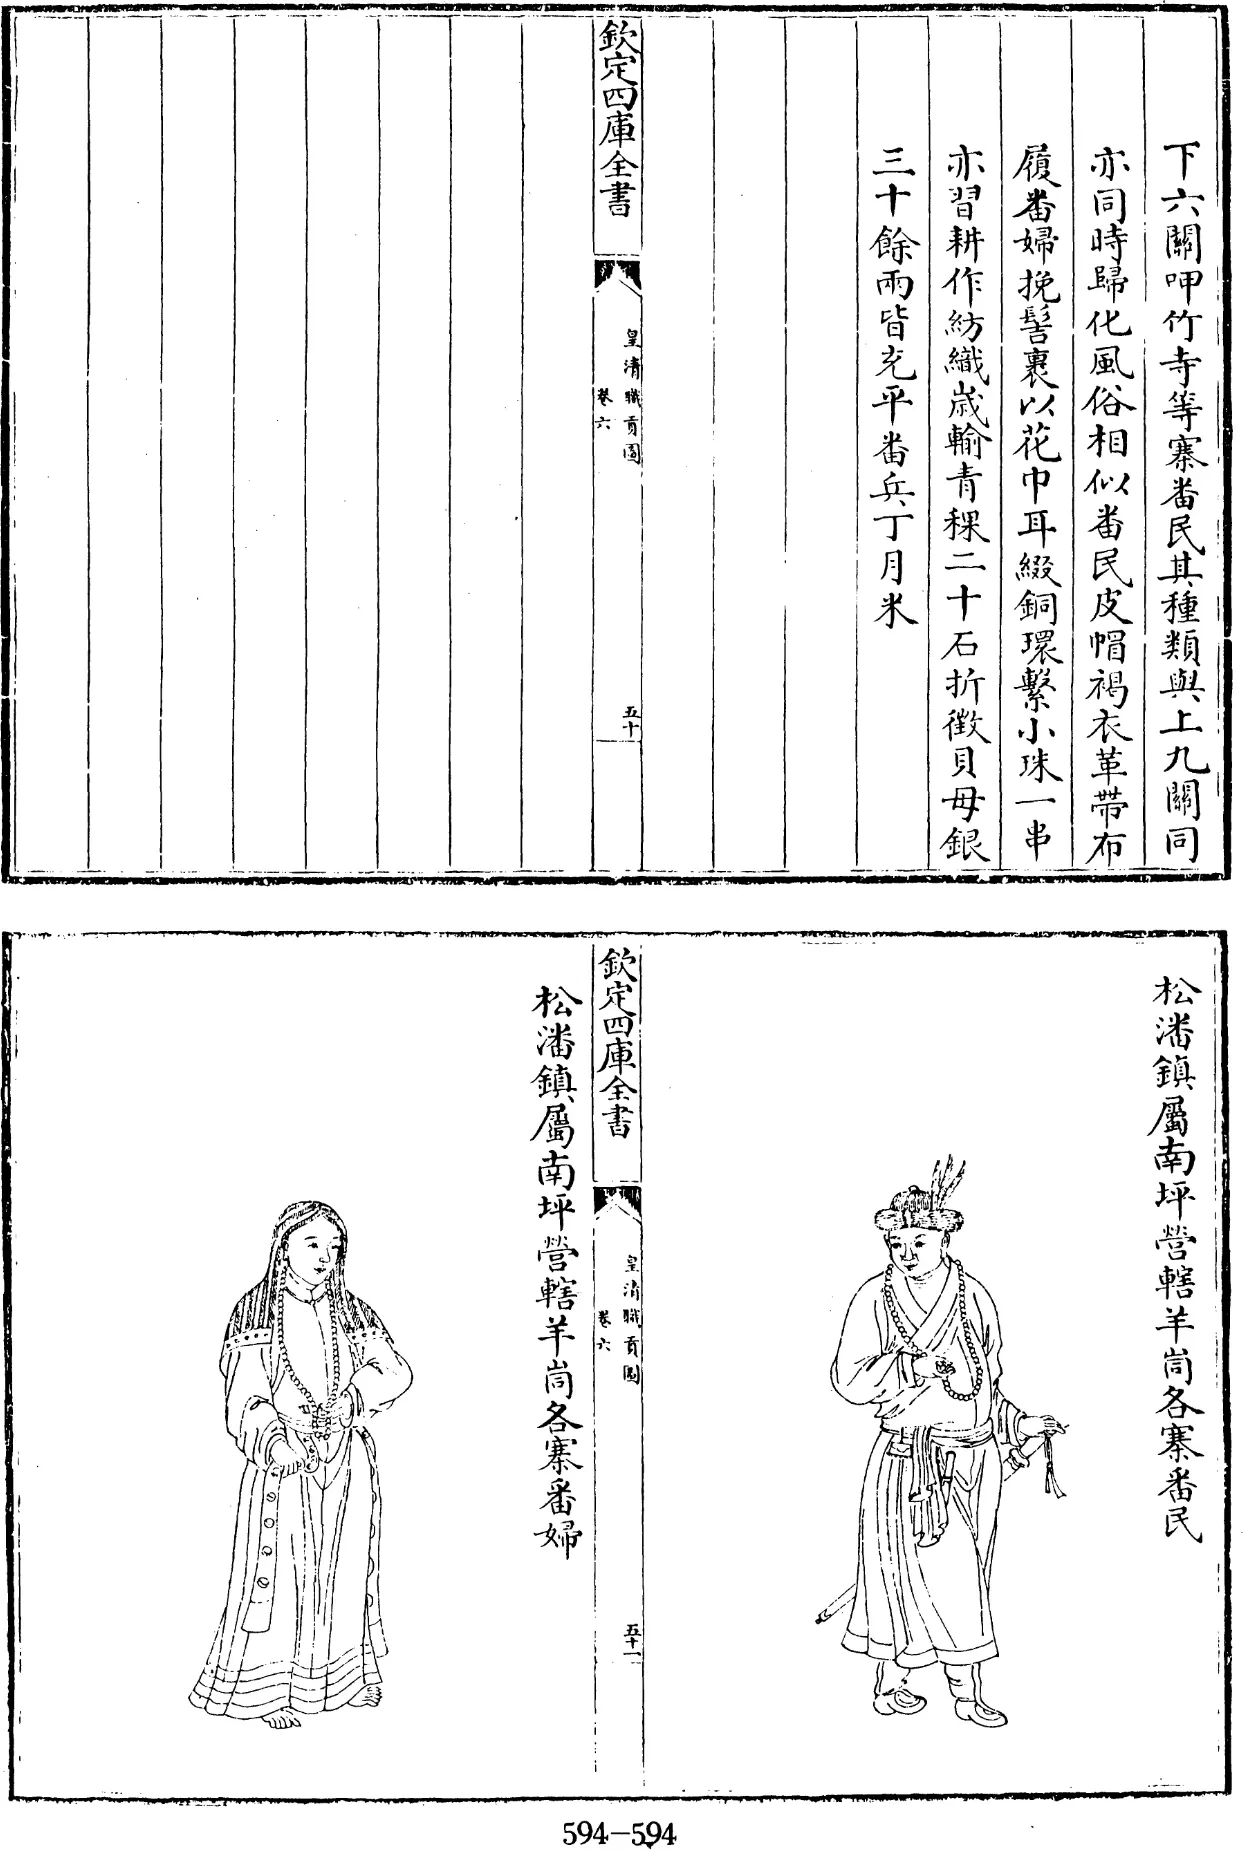 下六關呷竹寺等寨番民其種類與上九關同
亦同時歸化風俗相似番民皮帽褐衣革帶布
履番婦挽髻裹以花巾耳綴銅環繫小珠一串
亦習耕作紡織歲輸青稞二十石折徵貝母銀
三十餘兩皆充平番兵丁月米
欽定四庫全書
皇清職貢圖
卷六
五十
松潘鎮屬南坪營轄羊峝各寨番民
欽定四庫全書
皇清職貢圖
卷六
五十一
松潘鎮屬南坪營轄羊峝各寨番婦
594-594